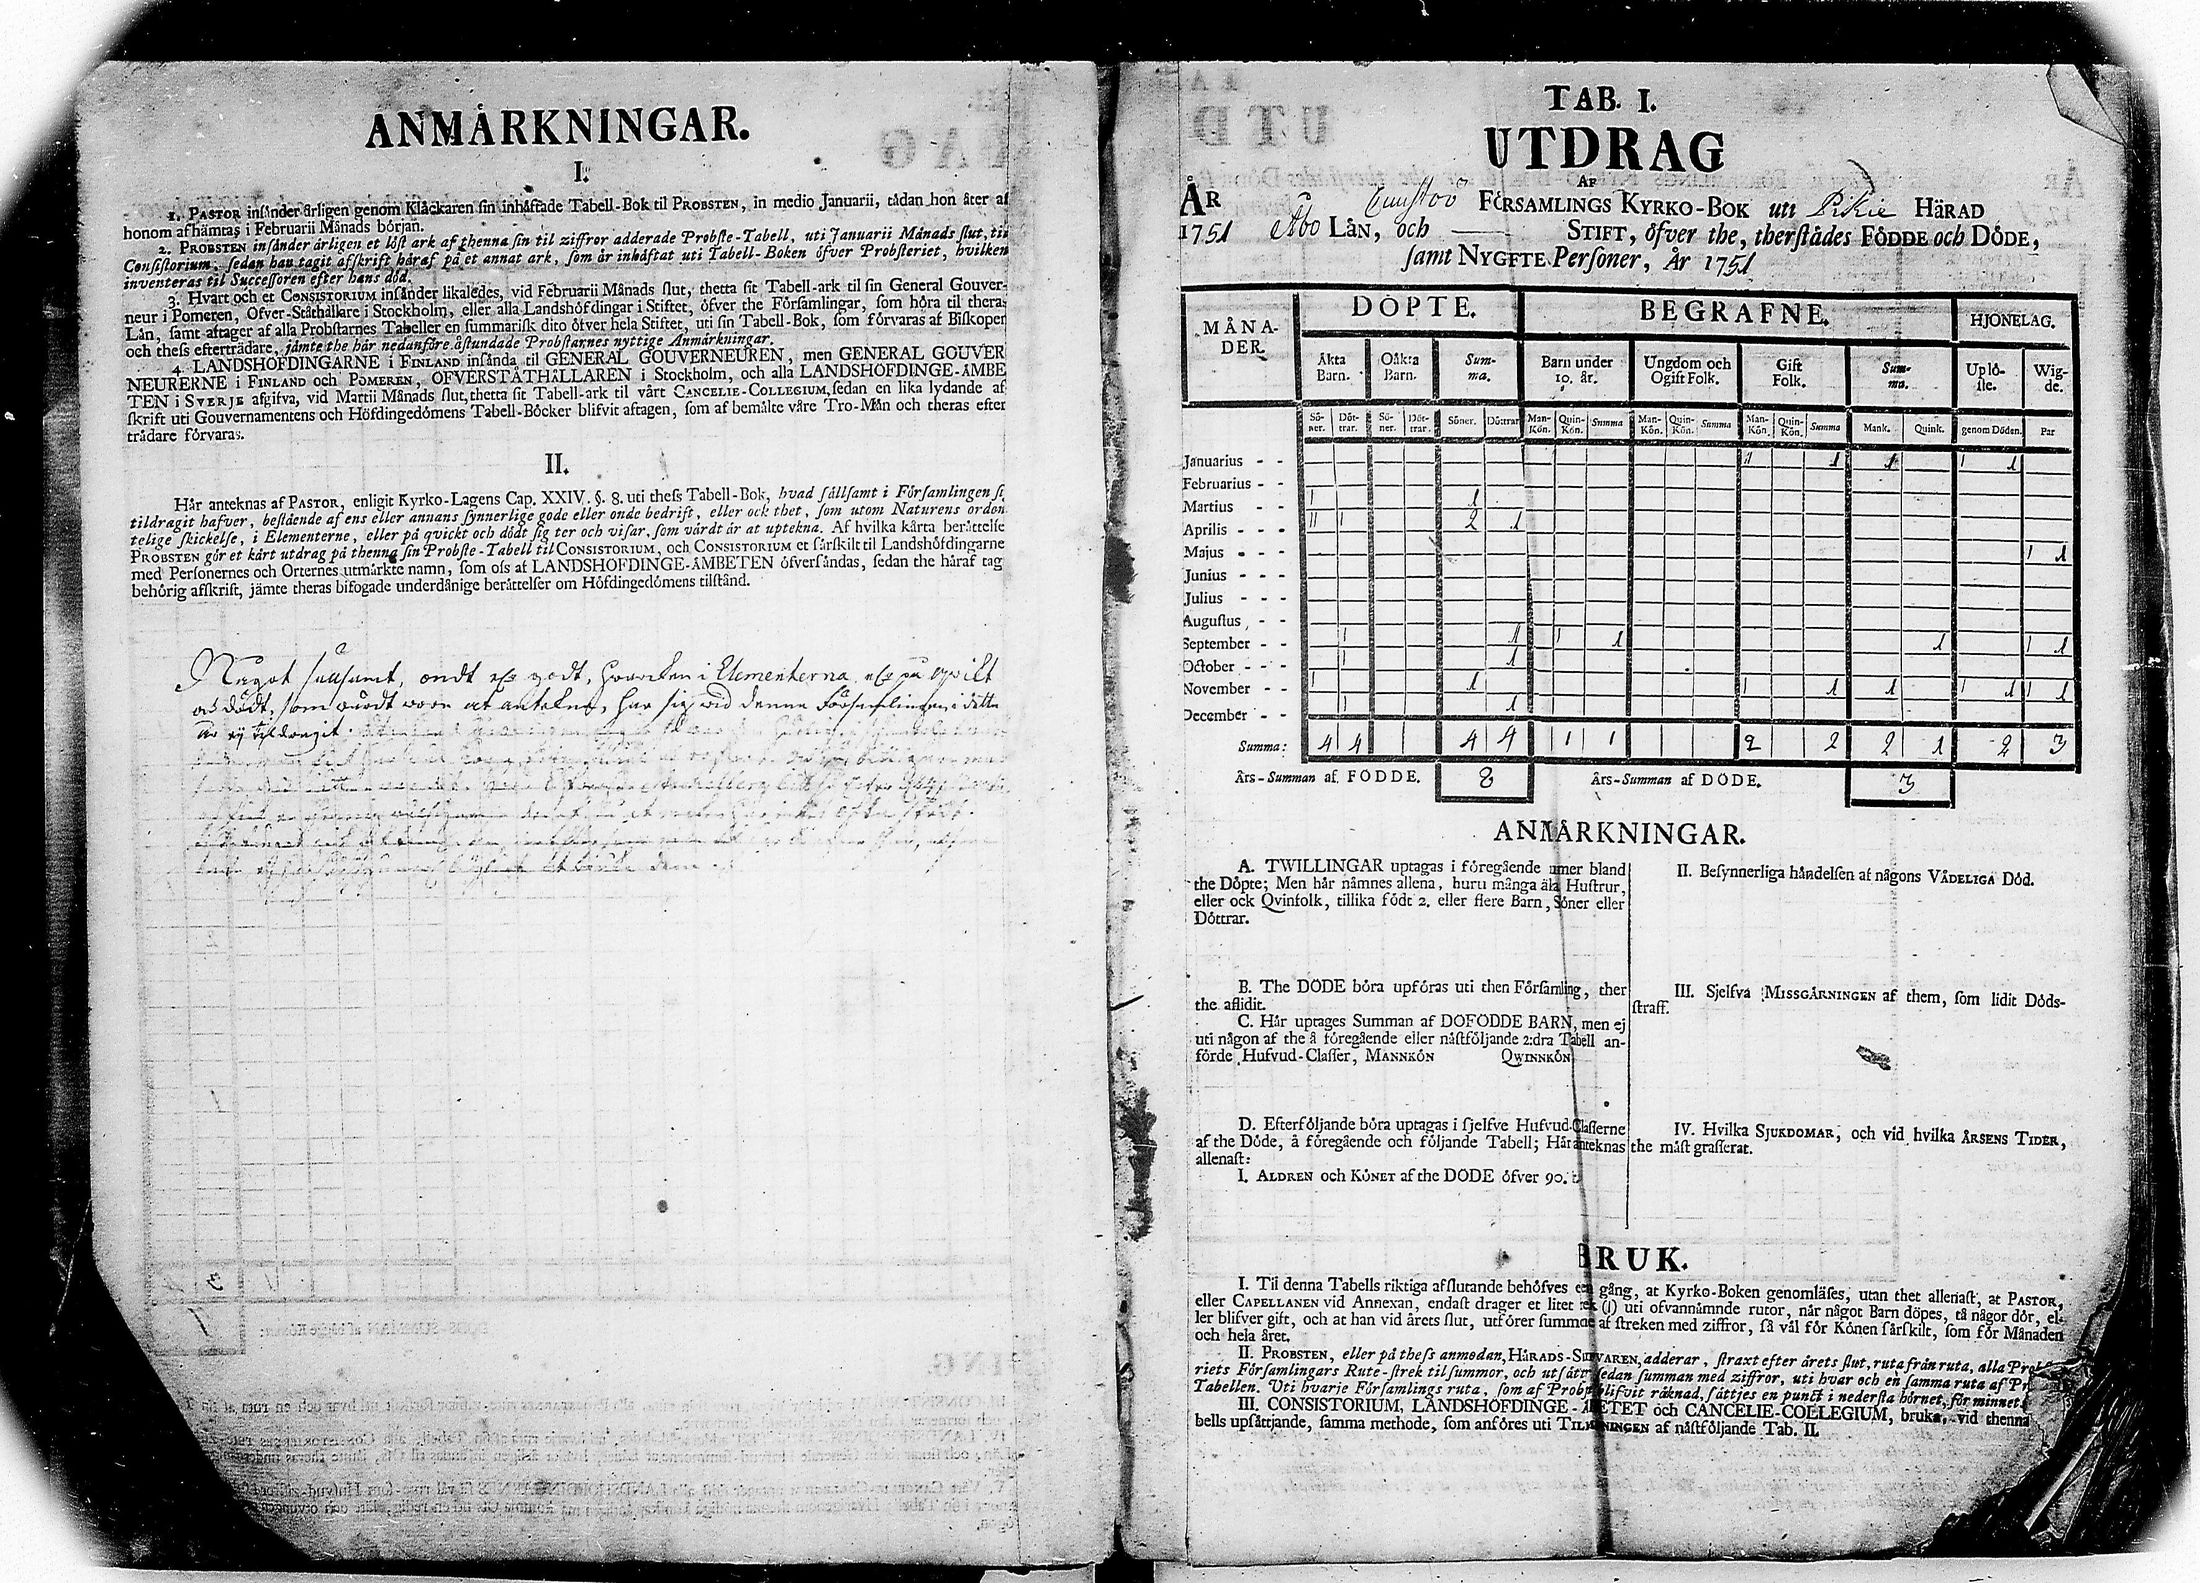 ANMÄRKNINGAR.
I.
1. PASTOR insänder årligen genom Klåckaren sin inhäftade Tabell-Bok til PROBSTEN, in medio Januarii, tådan hon åter af
honom afhämtas i Februarii Månads början.
2. PROBSTEN insänder årligen et löst ark af thenna sin til ziffror adderade Probste-Tabell, uti Januarii Månads slut, til
Consistorium, sedan han tagit afskrift häraf på et annat ark, som är inhäftat uti Tabell-Boken öfver Probsteriet, hvilken
inventeras til Successoren efter hans död.
3. Hvart och et CONSISTORIUM insänder likaledes, vid Februarii Månads slut, thetta sit Tabell-ark til sin General Gouver-
neur i Pomeren, Öfver-Ståthållare i Stockholm, eller alla Landshöfdingar i Stiftet, öfver the Församlingar, som höra til theras
Län, samt aftager af alla Probstarnes Tabeller en summarisk dito öfver hela Stiftet, uti sin Tabell-Bok, som förvaras af Biskopen
och thess efterträdare, jämte the här nedanföre åstundade Probstarnes nyttige Anmärkningar.
4. LANDSHÖFDINGARNE i FINLAND insända til GENERAL GOUVERNEUREN, men GENERAL GOUVER
NEURERNE i FINLAND och POMEREN, ÖFVERSTÅTHÅLLAREN i Stockholm, och alla LANDSHÖFDINGE-ÄMBE
TEN i SVERJE afgifva, vid Martii Månads slut, thetta sit Tabell-ark til vårt CANCELIE-COLLEGIUM, sedan en lika lydande af
skrift uti Gouvernamentens och Höfdingedömens Tabell-Böcker blifvit aftagen, som af bemälte våre Tro-Män och theras efter
trädare förvaras.
II.
Här anteknas af PASTOR, enligit Kyrko-Lagens Cap. XXIV. §. 8. uti thess Tabell-Bok, hvad sällsamt i Församlingen si
tildragit hafver, bestående af ens eller annans synnerlige gode eller onde bedrift, eller ock thet, som utom Naturens orden
telige skickelse, i Elementerne, eller på qvickt och dödt sig ter och visar, som värdt är at uptekna. Af hvilka kårta berättelse
PROBSTEN gör et kårt utdrag på thenna sin Probste-Tabell til CONSISTORIUM, och CONSISTORIUM et särskilt til Landshöfdingarne
med Personernes och Orternes utmärkte namn, som oss af LANDSHÖFDINGE-ÄMBETEN öfversändas, sedan the häraf tag
behörig afskrift, jämte theras bifogade underdånige berättelser om Höfdingedömens tilstånd.
Något sällsamt, ondt eller godt, hvarcken i Elementerna eller på qvikt
och dödt, som värdt vore at antekna, har sig vid denna Församlingen i detta
år ej tildragit.
TAB. I.
UTDRAG
AF
ÅR FÖRSAMLINGS KYRKO-BOK uti Pikie HÄRAD
1751 Åbo LÄN, och STIFT, öfver the, therstädes FÖDDE och DÖDE,
samt NYGFTE Personer, År 1751
MÅNA-
DER. DÖPTE. BEGRAFNE. HJONELAG.
Äkta Barn. Oäkta Barn. Sum-ma. Barn under 10. år. Ungdom och Ogift Folk. Gift Folk. Sum-ma. Uplö-ste. Wig-de.
Sö-ner. Döt-trar. Sö-ner. Döt-trar. Söner. Döttrar Man-Kön. Quin-Kön. Summa Man-Kön. Quin-Kön. Summa Man-Kön. Quin-Kön. Summa Mank. Quink. genom Döden. Par
Januarius - - 1 1 1 1 1
Februarius - -
Martius - - 1 1
Aprilis - - - 11 1 2 1
Majus - - - 1 1
Junius - - -
Julius - - -
Augustus - -
September - - 1 1 1 1 1 1 1
October - - 1 1
November - - 1 1 1 1 1 1 1 1 1
December - - 1 1
Summa: 4 4 4 4 1 1 2 2 2 1 2 3
Års-Summan af FÖDDE. 8 Års-Summan af DÖDE. 3
ANMÄRKNINGAR.
A. TWILLINGAR uptagas i föregående umer bland
the Döpte; Men här nämnes allena, huru många äkta Hustrur,
eller ock Qvinfolk, tillika födt 2. eller flere Barn, Söner eller
Döttrar.
B. The DÖDE böra upföras uti then Församling, ther
the aflidit.
C. Här uptages Summan af DÖFÖDDE BARN, men ej
uti någon af the å föregående eller nästföljande 2:dra Tabell an-
förde Hufvud-Classer, MANNKÖN QWINNKÖN
D. Efterföljande böra uptagas i sjelfve Hufvud-Classerne
af the Döde, å föregående och följande Tabell; Här anteknas
allenast:
I. ÅLDREN och KÖNET af the DÖDE öfver 90.
II. Besynnerliga händelsen af någons VÅDELIGA Död.
III. Sjelfva MISSGÄRNINGEN af them, som lidit Döds-
straff.
IV. Hvilka SJUKDOMAR, och vid hvilka ÅRSENS TIDER,
the mäst grasserat.
BRUK.
I. Til denna Tabells riktiga afslutande behöfves en gång, at Kyrko-Boken genomläses, utan thet allenast, at PASTOR,
eller CAPELLANEN vid Annexan, endast drager et litet rek (|) uti ofvannämnde rutor, når något Barn döpes, tå någor dör, el-
ler blifver gift, och at han vid årets slut, utförer summan af streken med ziffror, så väl för Könen särskilt, som för Månaden
och hela året.
II. PROBSTEN, eller på thess anmodan, HÄRADS-SKRIFVAREN, adderar, straxt efter årets slut, ruta från ruta, alla
riets Församlingars Rute-strek til summor, och utsätter sedan summan med ziffror, uti hvar och en samma ruta af
Tabellen. Uti hvarje Församlings ruta, som af Probsten blifvit räknad, sättjes en punct i nedersta hörnet, för minnet
III. CONSISTORIUM, LANDSHÖFDINGE-ÄMBETET och CANCELIE-COLLEGIUM, bruka, vid thenna
bells upsättjande, samma methode, som anföres uti TILÄMNINGEN af nästföljande Tab. II.